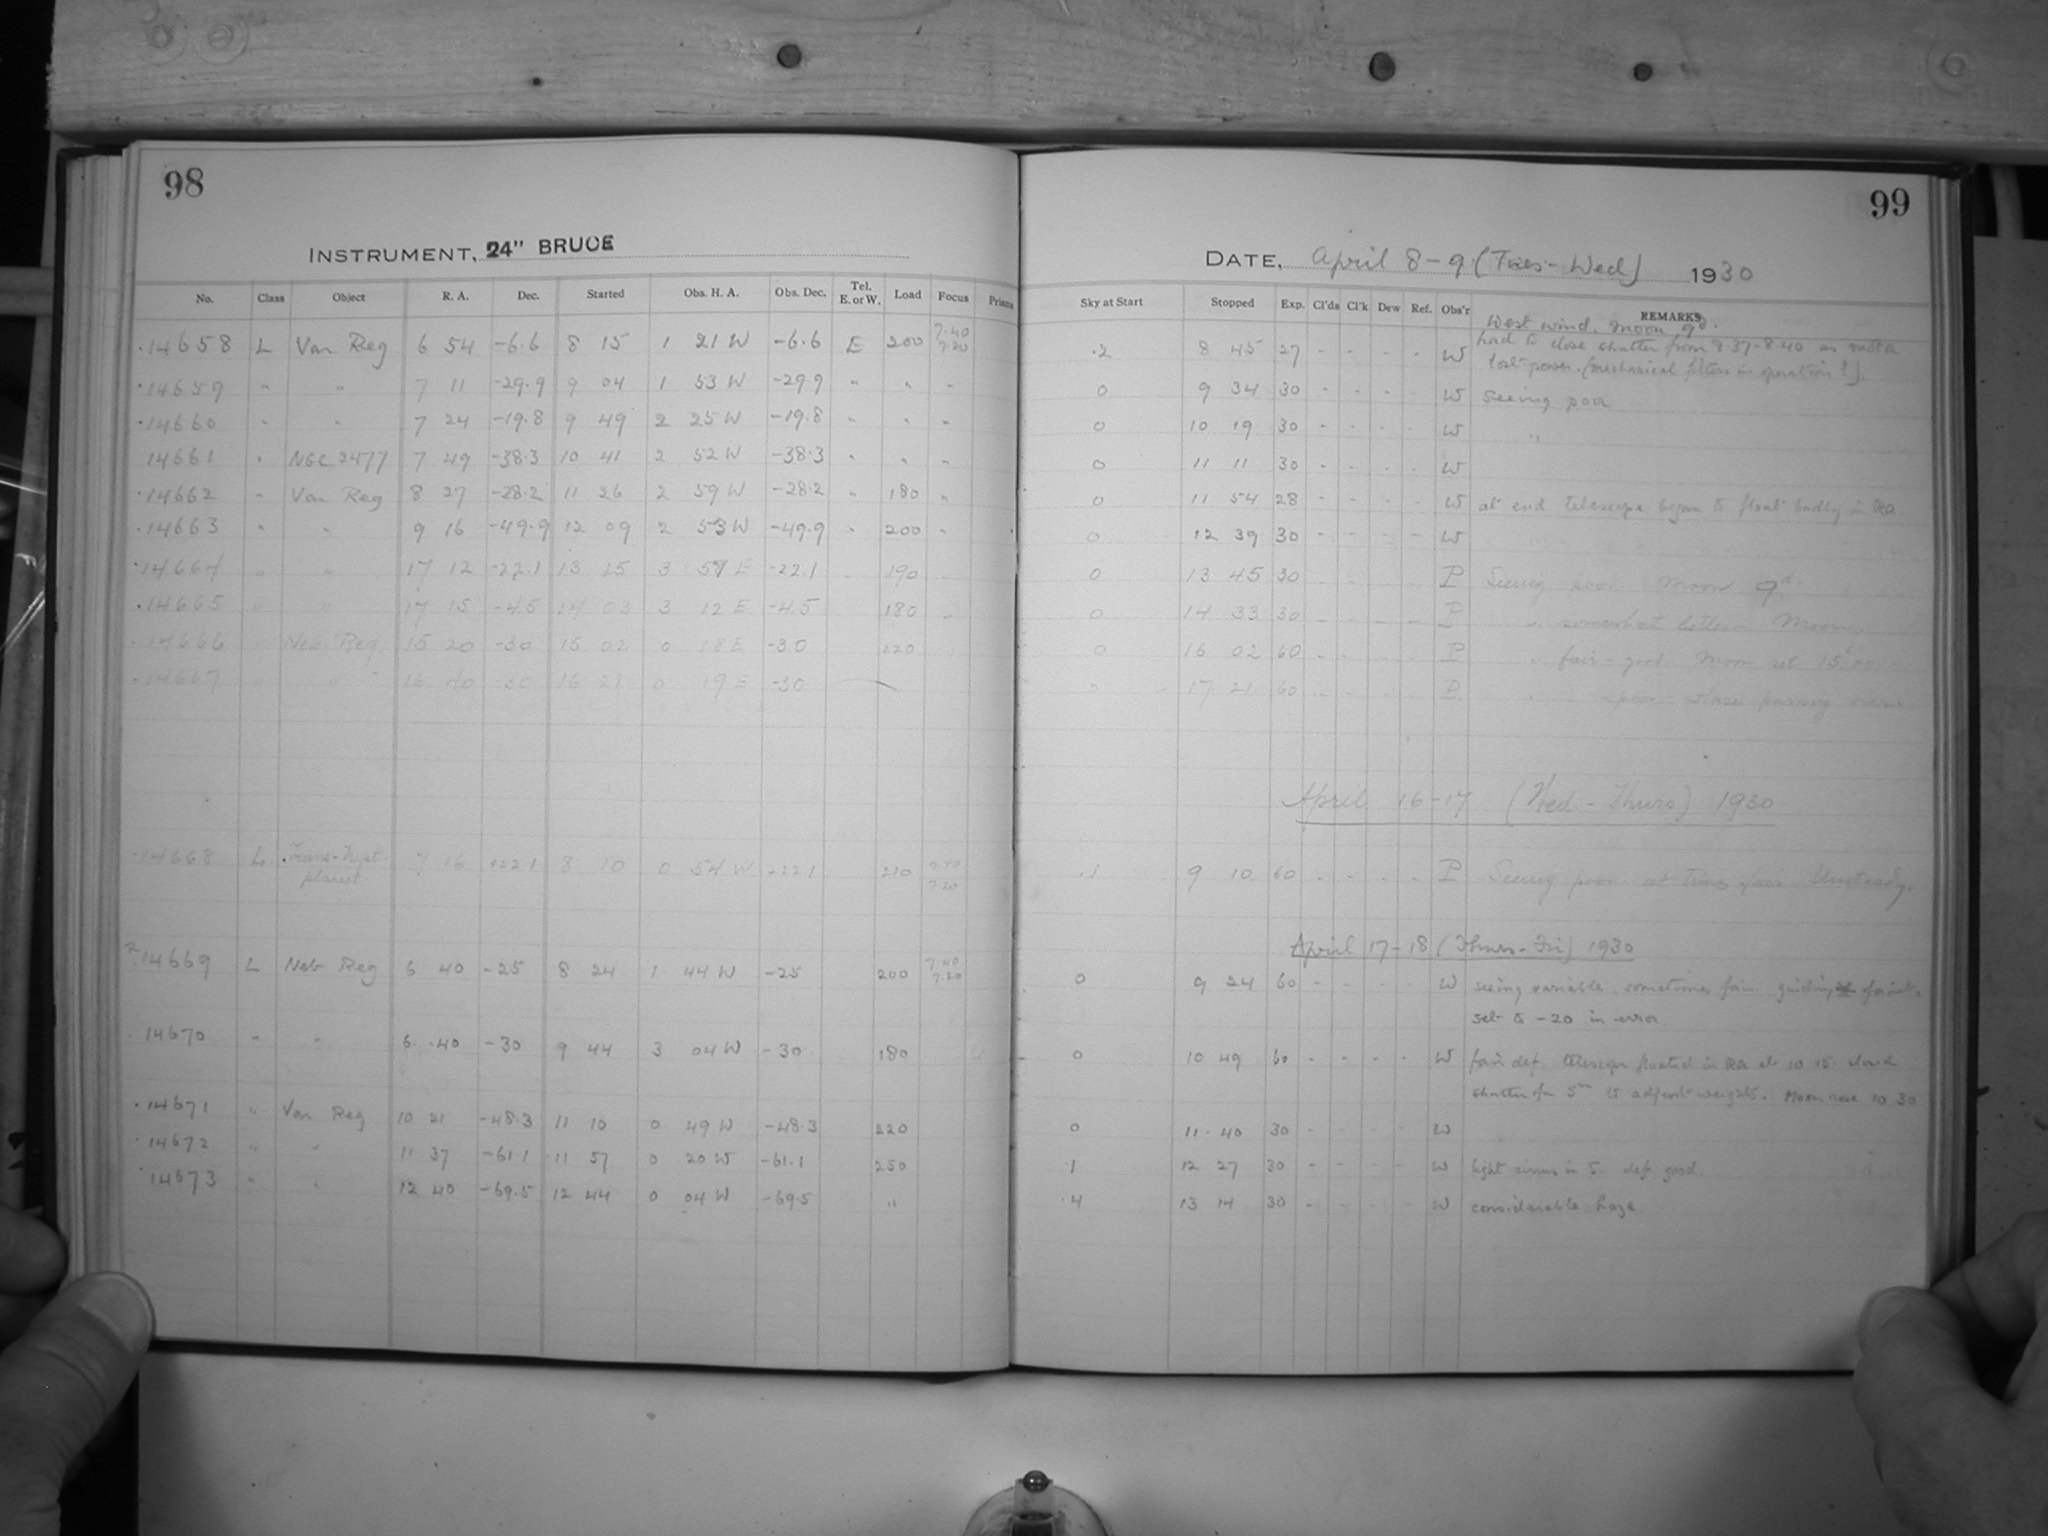 98
INSTRUMENT, 24" BRUCE
No. Class Object R. A. Dec. Started Obs. H. A. Obs. Dec. Tel. E. or W. Load Focus Prisms
14658 L Var Reg 6 54 -6.6 8 15 1 21 W -6.6 E 200 7.40 7.20
14659 " " 7 11 -29.9 9 04 1 53 W -29.9 " " "
14660 " " 7 24 -19.8 9 49 2 25 W -19.8 " " "
14661 " NGC 2477 7 49 -38.3 10 41 2 52 W -38.3 " " "
14662 " Var Reg 8 27 -28.2 11 26 2 59 W -28.2 " 180 "
14663 " " 9 16 -49.9 12 09 2 53 W -49.9 " 200 "
14664 " " 17 12 -22.1 13 15 3 57 E -22.1 190
14665 " " 17 15 -4.5 14 03 3 12 E -4.5 180
14666 Neb. Reg. 15 20 -30 15 02 0 18 E -30 220
14667 " " 16 40 -30 16 21 0 19 E -30
14668 L Trans-Nept. planet 7 16 +22.1 8 10 0 54 W -22.1 210 7.40 7.20
14669 L Neb Reg 6 40 -25 8 24 1 44 W -25 200 7.40 7.20
14670 " " 6 40 -30 9 44 3 04 W -30 180
14671 " Var Reg 10 21 -48.3 11 10 0 49 W -48.3 220
14672 " " 11 37 -61.1 11 57 0 20 W -61.1 250
14673 " " 12 40 -69.5 12 44 0 04 W -69.5 "
99
DATE, April 8-9 (Tues-Wed) 1930
Sky at Start Stopped Exp. Cl'ds Cl'k Dew Ref. Obs'r REMARKS
West wind. Moon 9d.
had to close shutter from 8.37-8.40 as
.2 8 45 27 - - - - W lost power. (mechanical filters in operation?)
0 9 34 30 - - - - W seeing poor
0 10 19 30 - - - - W "
0 11 11 30 - - - - W
0 11 54 28 - - - - W at end telescope began to float badly in RA
0 12 39 30 - - - - W
0 13 45 30 - - - - P Seeing poor. Moon 9d.
0 14 33 30 - - - - P " somewhat better Moon
0 16 02 60 - - P " fair-good Moon set 15h00
0 17 21 60 P " poor Haze passing over
April 16-17 (Wed-Thurs) 1930
.1 9 10 60 - - - - P Seeing poor at times fair Unsteady.
April 17-18 (Thurs-Fri) 1930
0 9 24 60 - - - - W seeing variable. sometimes fair guiding * faint.
set to -20 in error
0 10 49 60 - - - - W fair def. telescope floated in RA at 10 15. closed
shutter for 5m to adjust weights. Moon rose 10 30
0 11.40 30 - - - - W
.1 12 27 30 - - - - W light cirrus in S. def. good.
.4 13 14 30 - - - - W considerable haze